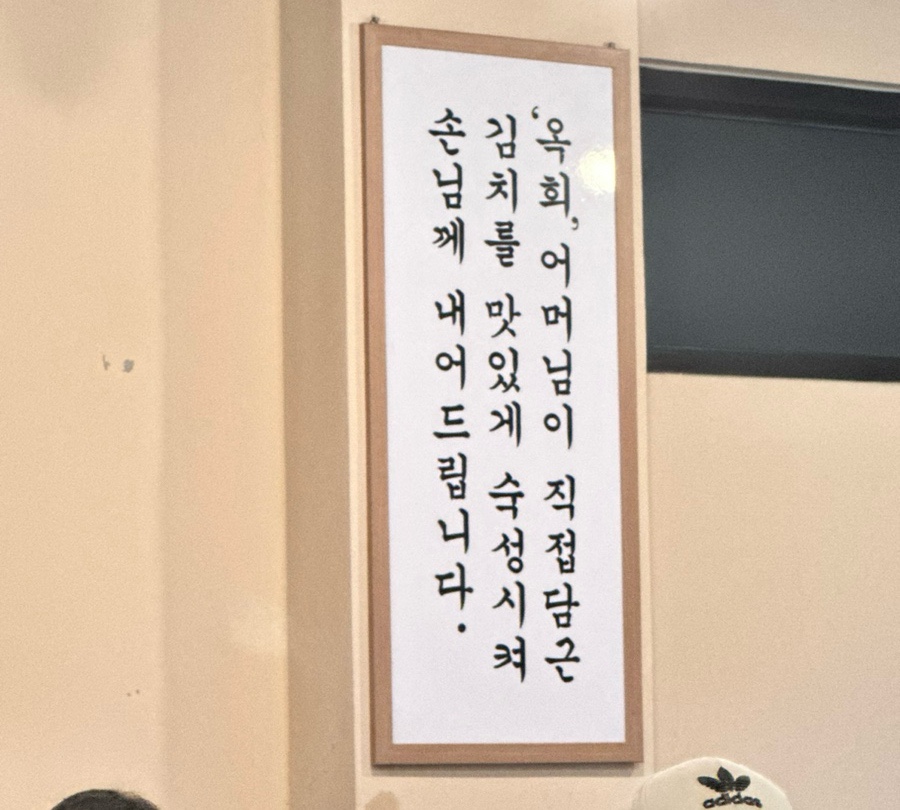 ‘옥희’어머님이 직접담근
김치를 맛있게 숙성시켜
손님께 내어드립니다.
adidas